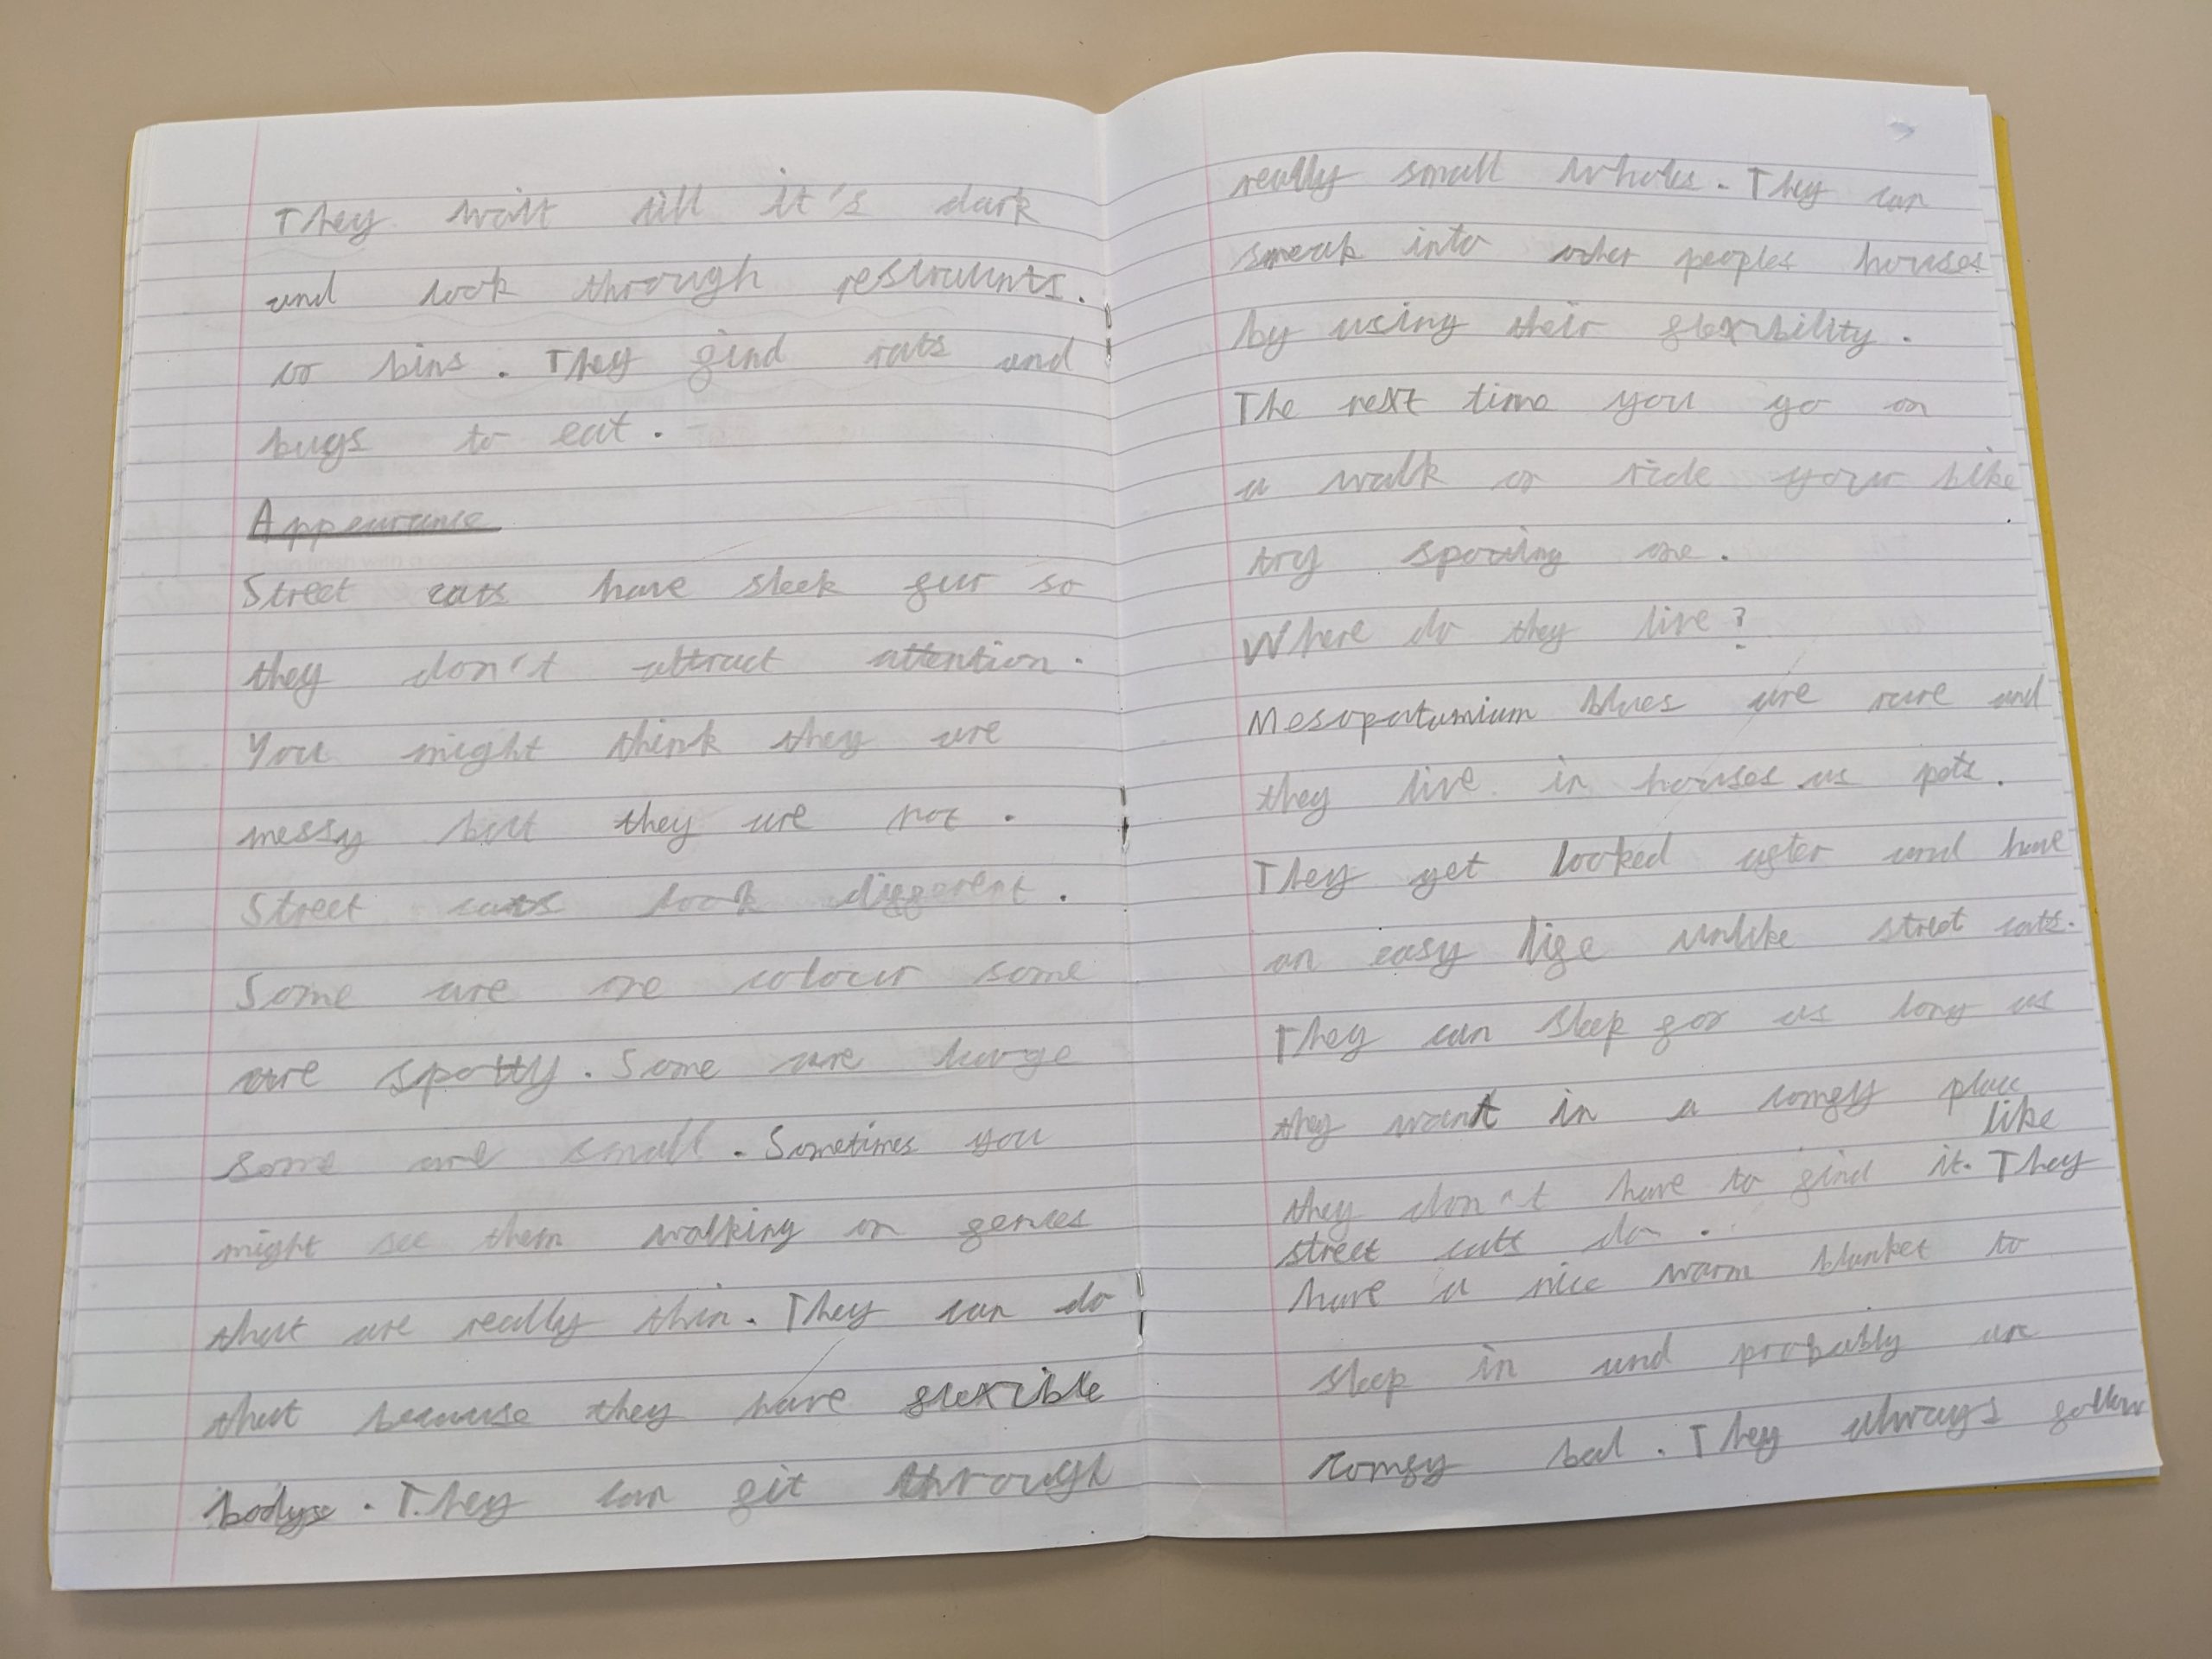 They wait till it's dark
and look through restraunts.
or bins. They find rats and
bugs to eat.
Appearance
Street cats have sleek fur so
they don't attract attention.
You might think they are
messy but they are not.
Street cats look different.
Some are one colour some
are spotty. Some are large
some are small. Sometimes you
might see them walking on fences
that are really thin. They can do
that because they have flexible
bodys. They can fit through
really small wholes. They can
sneak into other peoples houses
by using their flexibility.
The next time you go on
a walk or ride your bike
try spoting one.
Where do they live?
Mesopotamium blues are rare and
they live in houses as pets.
They get looked after and have
an easy life unlike street cats.
They can sleep for as long as
they want in a comfy place
they don't have to find it. like
street cats do. They
have a nice warm blanket to
sleep in and probably an
comfy bed. They always follow